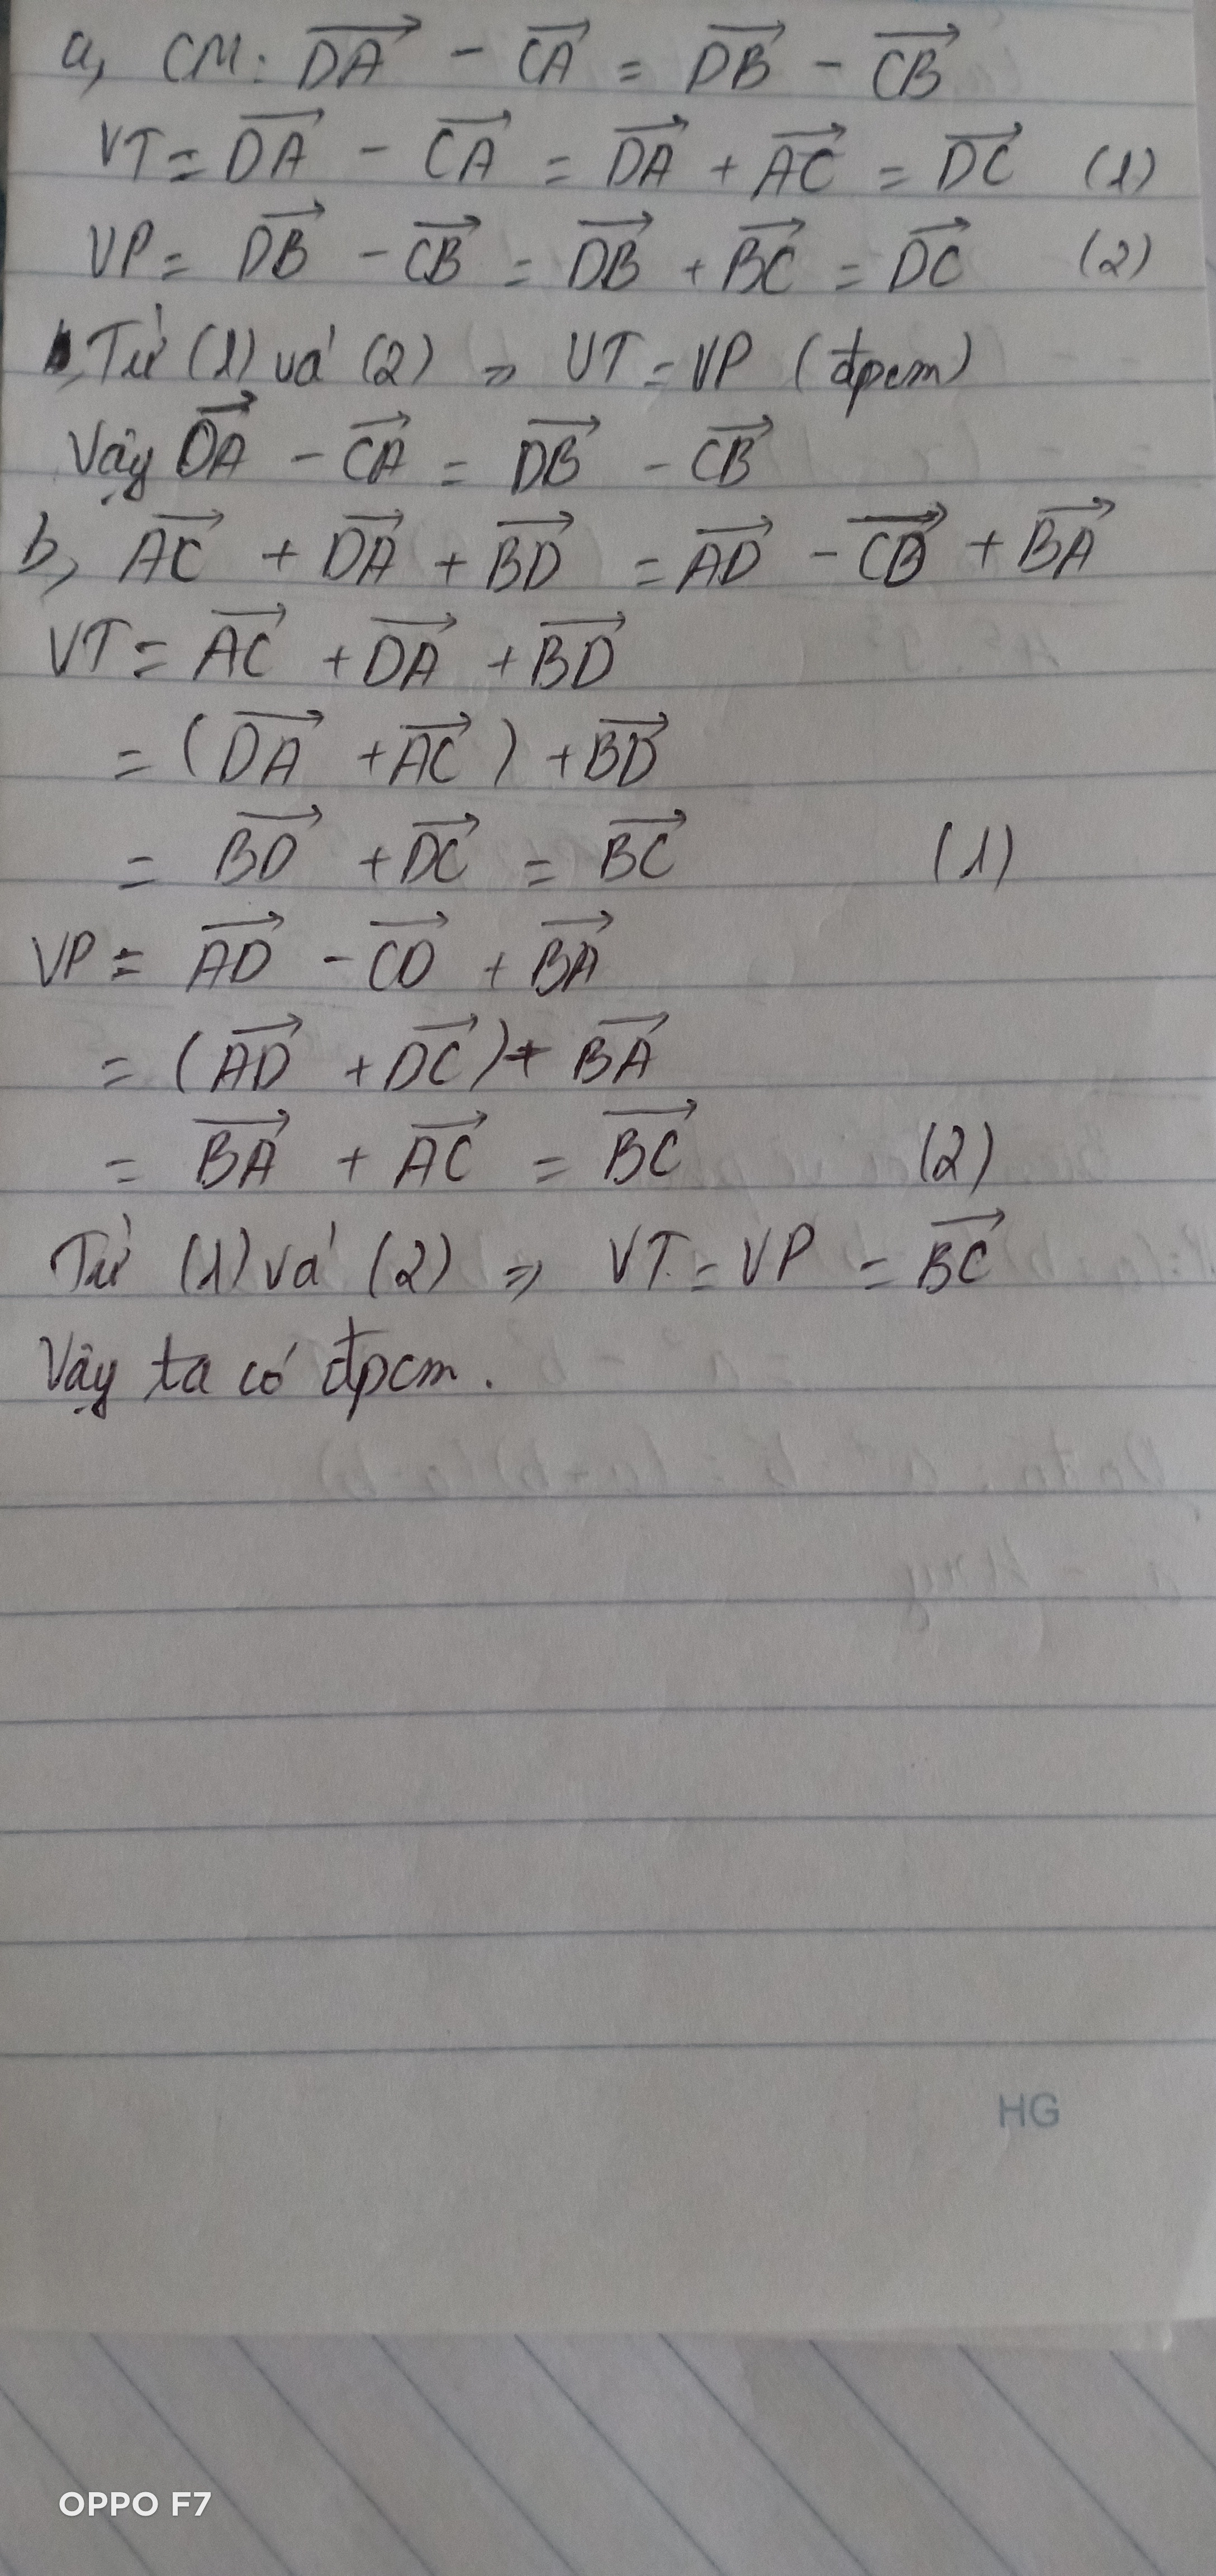 a, CM: DA→ - CA→ = DB→ - CB→
VT = DA→ - CA→ = DA→ + AC→ = DC→ (1)
VP = DB→ - CB→ = DB→ + BC→ = DC→ (2)
Từ (1) và (2) => VT = VP (đpcm)
Vậy DA→ - CA→ = DB→ - CB→
b, AC→ + DA→ + BD→ = AD→ - CB→ + BA→
VT = AC→ + DA→ + BD→
= (DA→ + AC→) + BD→
= BD→ + DC→ = BC→ (1)
VP = AD→ - CD→ + BA→
= (AD→ + DC→) + BA→
= BA→ + AC→ = BC→ (2)
Từ (1) và (2) => VT = VP = BC→
Vậy ta có đpcm.
HG
OPPO F7